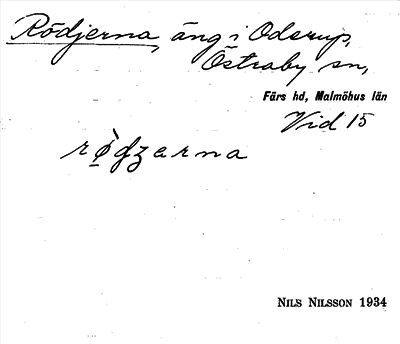 Rödjerna, äng i Oderup,
Östraby sn,
Färs hd, Malmöhus län
Vid 15
rø̠̀dʒarna
NILS NILSSON 1934